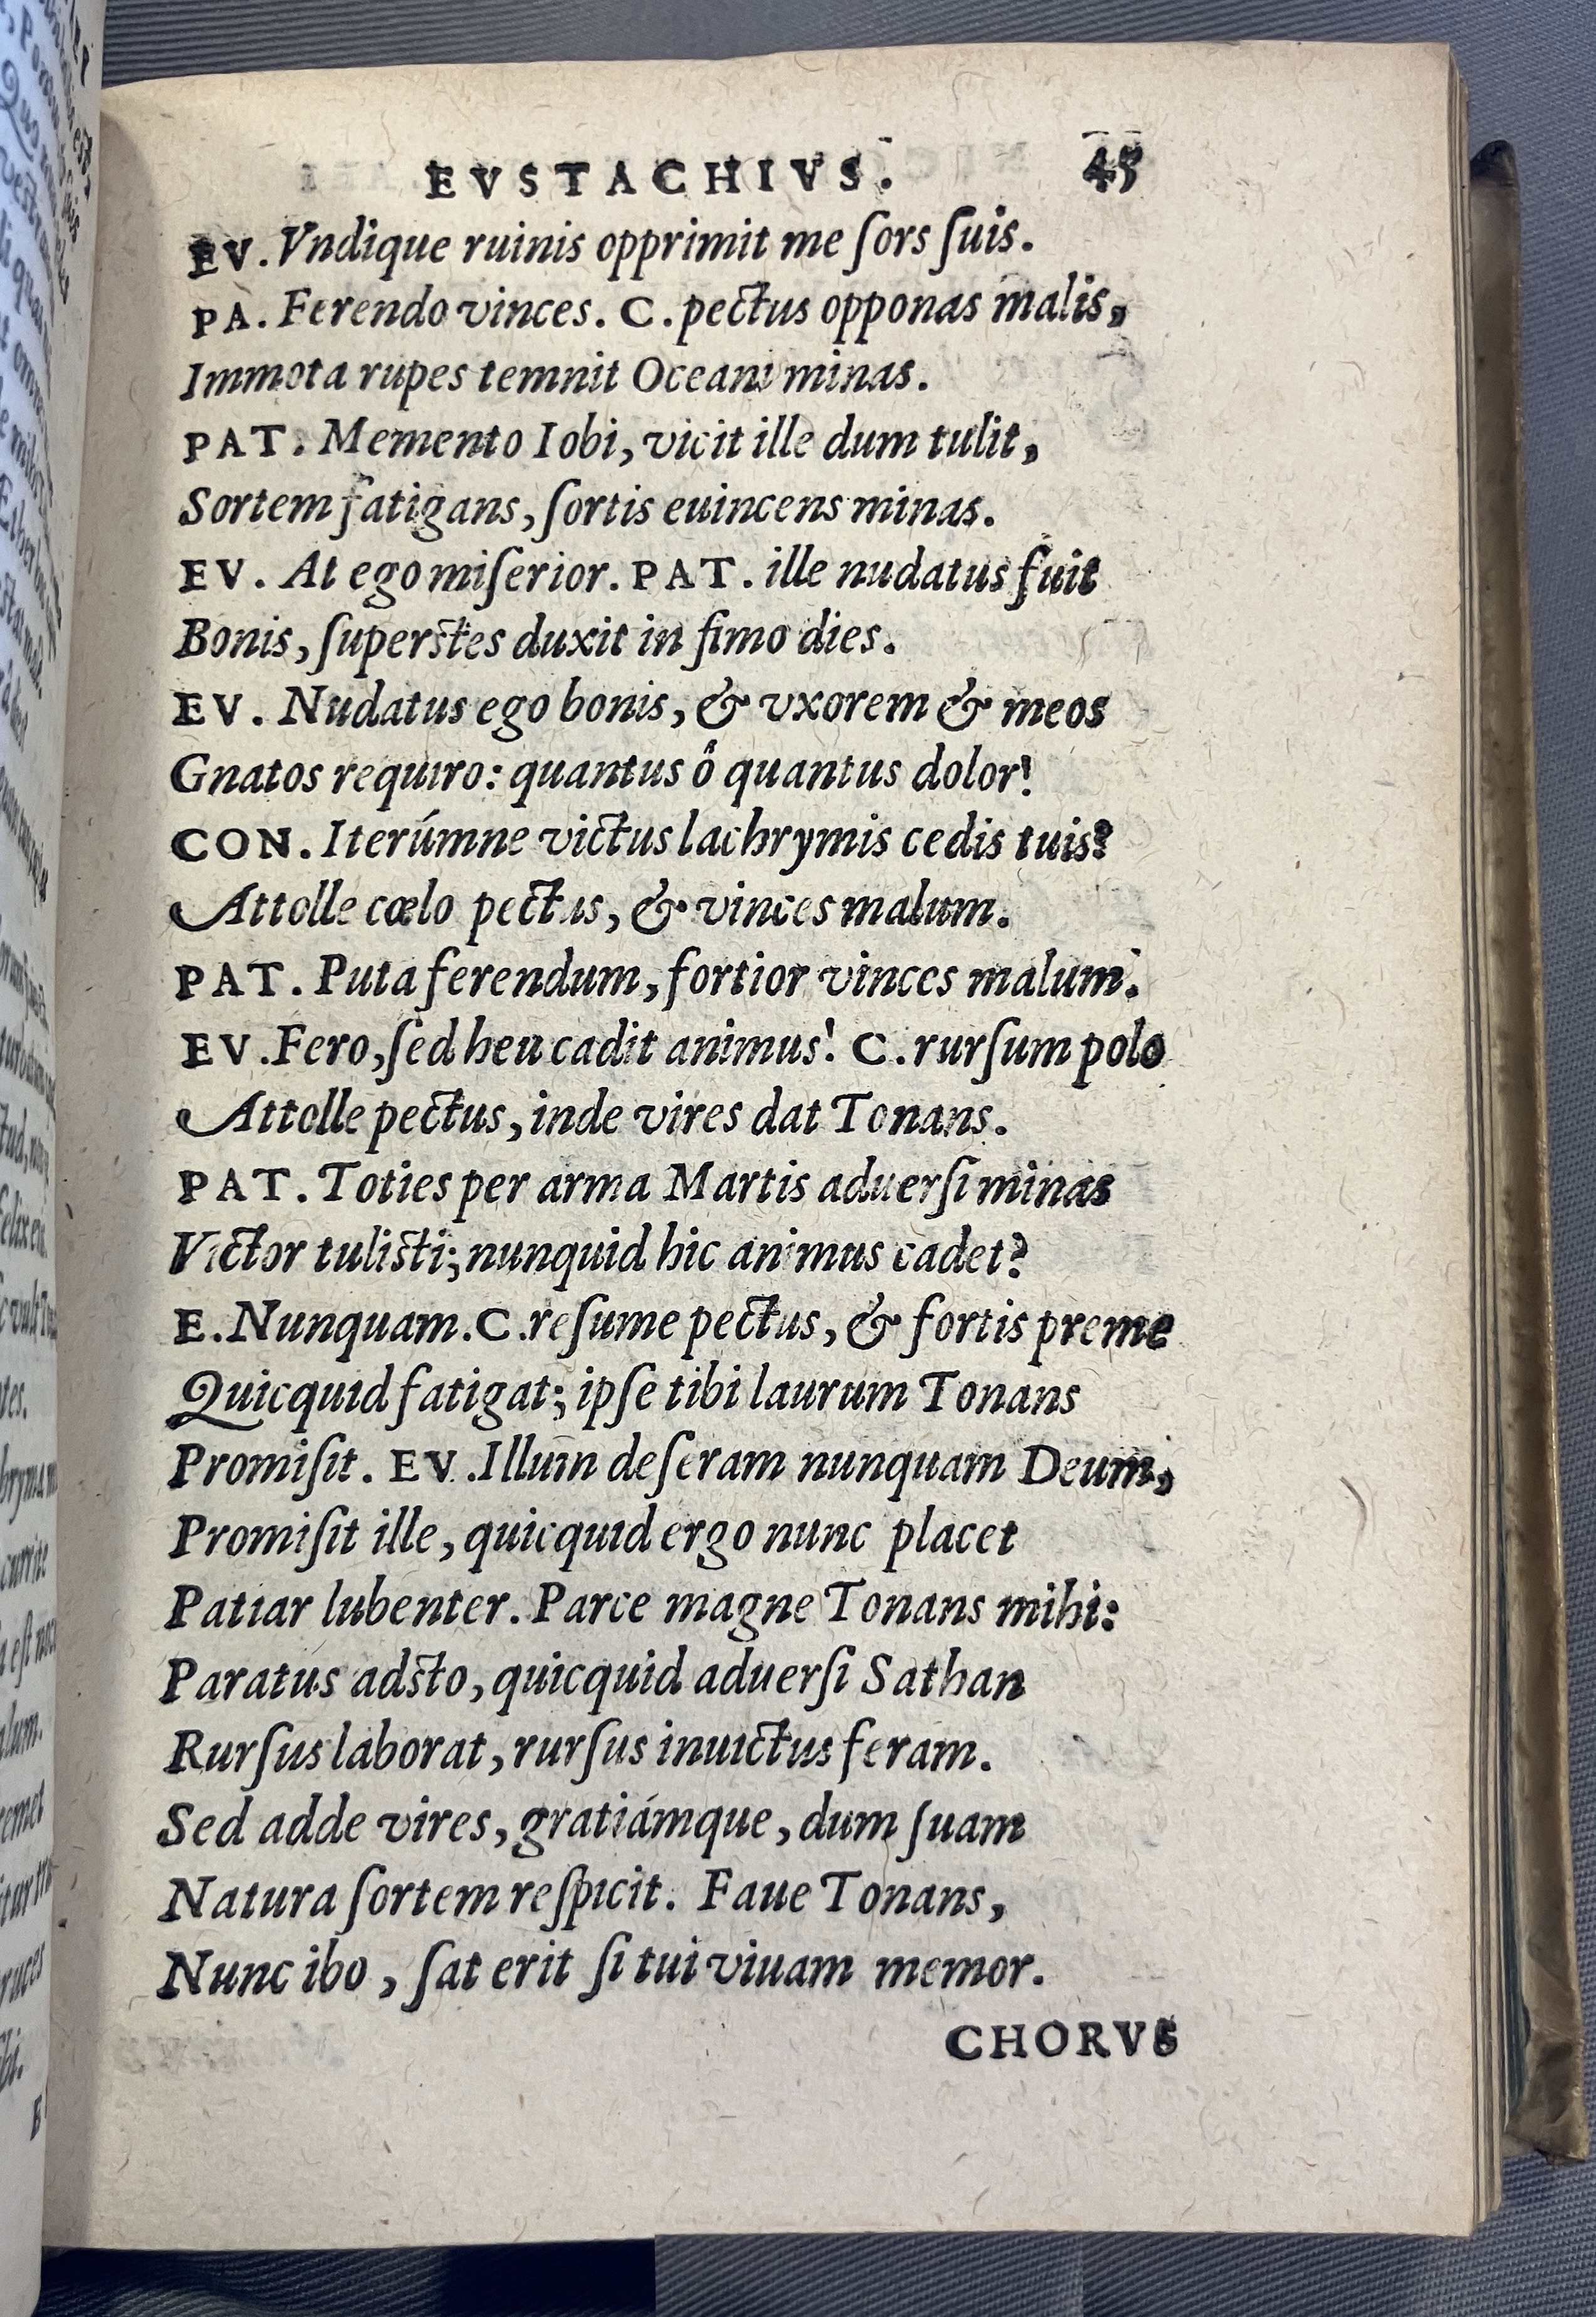 EVSTACHIVS. 45
EV. Vndique ruinis opprimit me ſors ſuis.
PA. Ferendo vinces. C. pectus opponas malis,
Immota rupes temnit Oceani minas.
PAT. Memento Iobi, vicit ille dum tulit,
Sortem fatigans, ſortis euincens minas.
EV. At ego miſerior. PAT. ille nudatus fuit
Bonis, ſuperstes duxit in fimo dies.
EV. Nudatus ego bonis, & vxorem & meos
Gnatos requiro: quantus ô quantus dolor!
CON. Iterúmne victus lachrymis cedis tuis?
Attolle cœlo pectus, & vinces malum.
PAT. Puta ferendum, fortior vinces malum.
EV. Fero, ſed heu cadit animus! C. rurſum polo
Attolle pectus, inde vires dat Tonans.
PAT. Toties per arma Martis aduerſi minas
Victor tulisti; nunquid hic animus cadet?
E. Nunquam. C. reſume pectus, & fortis preme
Quicquid fatigat; ipſe tibi laurum Tonans
Promiſit. EV. Illum deſeram nunquam Deum,
Promiſit ille, quicquid ergo nunc placet
Patiar lubenter. Parce magne Tonans mihi:
Paratus adsto, quicquid aduerſi Sathan
Rurſus laborat, rurſus inuictus feram.
Sed adde vires, gratiámque, dum ſuam
Natura ſortem reſpicit. Faue Tonans,
Nunc ibo, ſat erit ſi tui viuam memor.
CHORVS